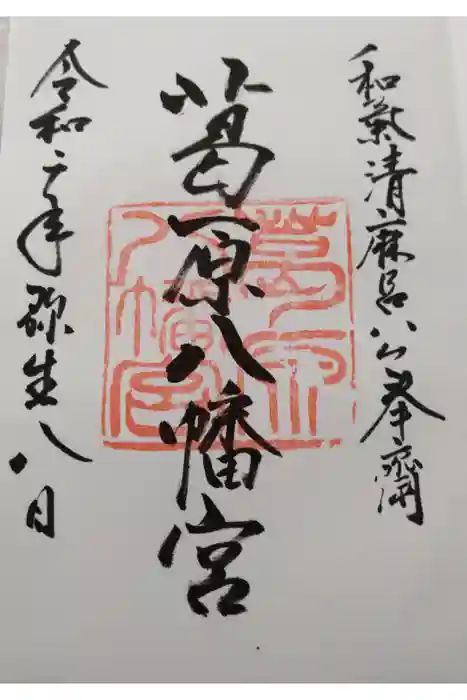 和氣清麻呂公奉齋
葛原八幡宮
令和二年弥生八日